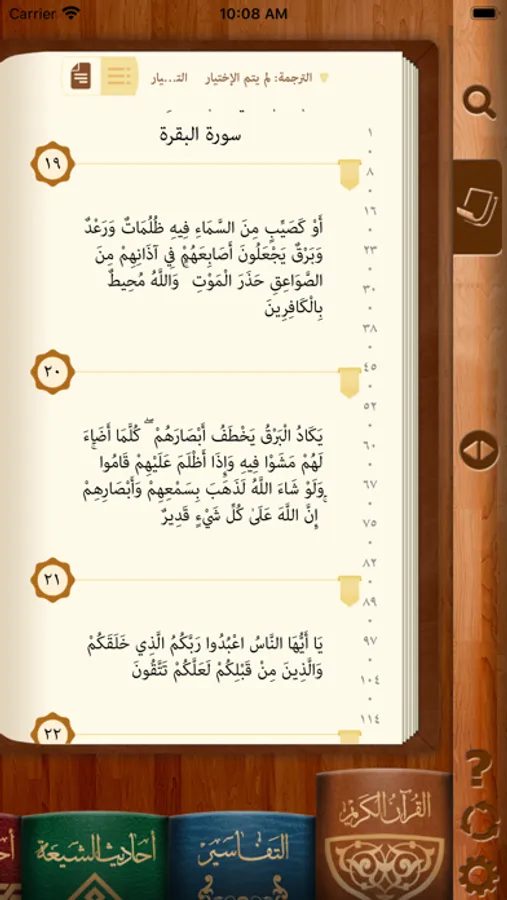 Carrier 10:08 AM
الترجمة: لم يتم الإختيار الت...يار
سورة البقرة
١٩
أَوْ كَصَيِّبٍ مِنَ السَّمَاءِ فِيهِ ظُلُمَاتٌ وَرَعْدٌ
وَبَرْقٌ يَجْعَلُونَ أَصَابِعَهُمْ فِي آذَانِهِمْ مِنَ
الصَّوَاعِقِ حَذَرَ الْمَوْتِ ۚ وَاللَّهُ مُحِيطٌ
بِالْكَافِرِينَ
٢٠
يَكَادُ الْبَرْقُ يَخْطَفُ أَبْصَارَهُمْ ۖ كُلَّمَا أَضَاءَ
لَهُمْ مَشَوْا فِيهِ وَإِذَا أَظْلَمَ عَلَيْهِمْ قَامُوا ۚ
وَلَوْ شَاءَ اللَّهُ لَذَهَبَ بِسَمْعِهِمْ وَأَبْصَارِهِمْ
ۚ إِنَّ اللَّهَ عَلَىٰ كُلِّ شَيْءٍ قَدِيرٌ
٢١
يَا أَيُّهَا النَّاسُ اعْبُدُوا رَبَّكُمُ الَّذِي خَلَقَكُمْ
وَالَّذِينَ مِنْ قَبْلِكُمْ لَعَلَّكُمْ تَتَّقُونَ
٢٢
١
٨
١٦
٢٣
٣٠
٣٨
٤٥
٥٢
٦٠
٦٧
٧٥
٨٢
٨٩
٩٧
١٠٤
١١٤
?
القرآن الكريم
التفاسير
أحاديث الشيعة